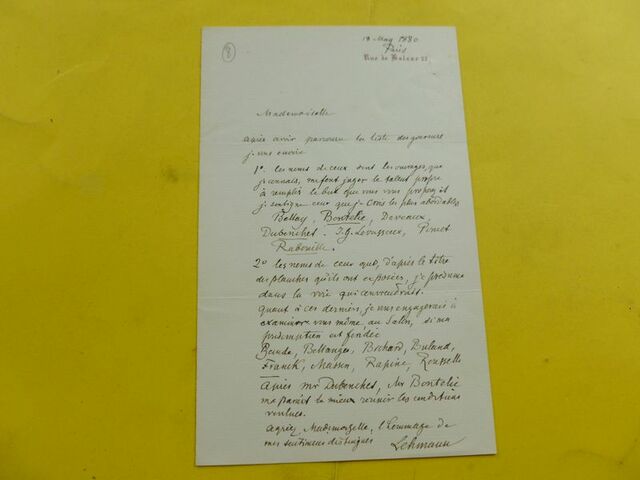 18 May 1880
Paris
Rue de Balzac 22
Mademoiselle
après avoir parcouru la liste des graveurs
je vous envoie
1º les noms de ceux dont les ouvrages, que
je connais, me font juger le talent propre
à remplir le but que vous vous proposez et
je souligne ceux que je crois les plus abordables
Bellay, Bontelié, Deveaux,
Dubouchet. J.G. Levasseur, Pinet
Rabouille.
2º les noms de ceux que, d'après le titre
des planches qu'ils ont exposées, je présume
dans la voie qui conviendrait.
quant à ces derniers, je vous engagerais à
examiner vous même au Salon, si ma
présomption est fondée
Bellanger, Bichard, Buland,
Franck, Masson, Rapine, Rousselle
Après Mr Dubouchet, Mr Bontelié
me paraît le mieux réunir les conditions
voulues.
agréez Mademoiselle, l'hommage de
mes sentiments distingués
Lehmann